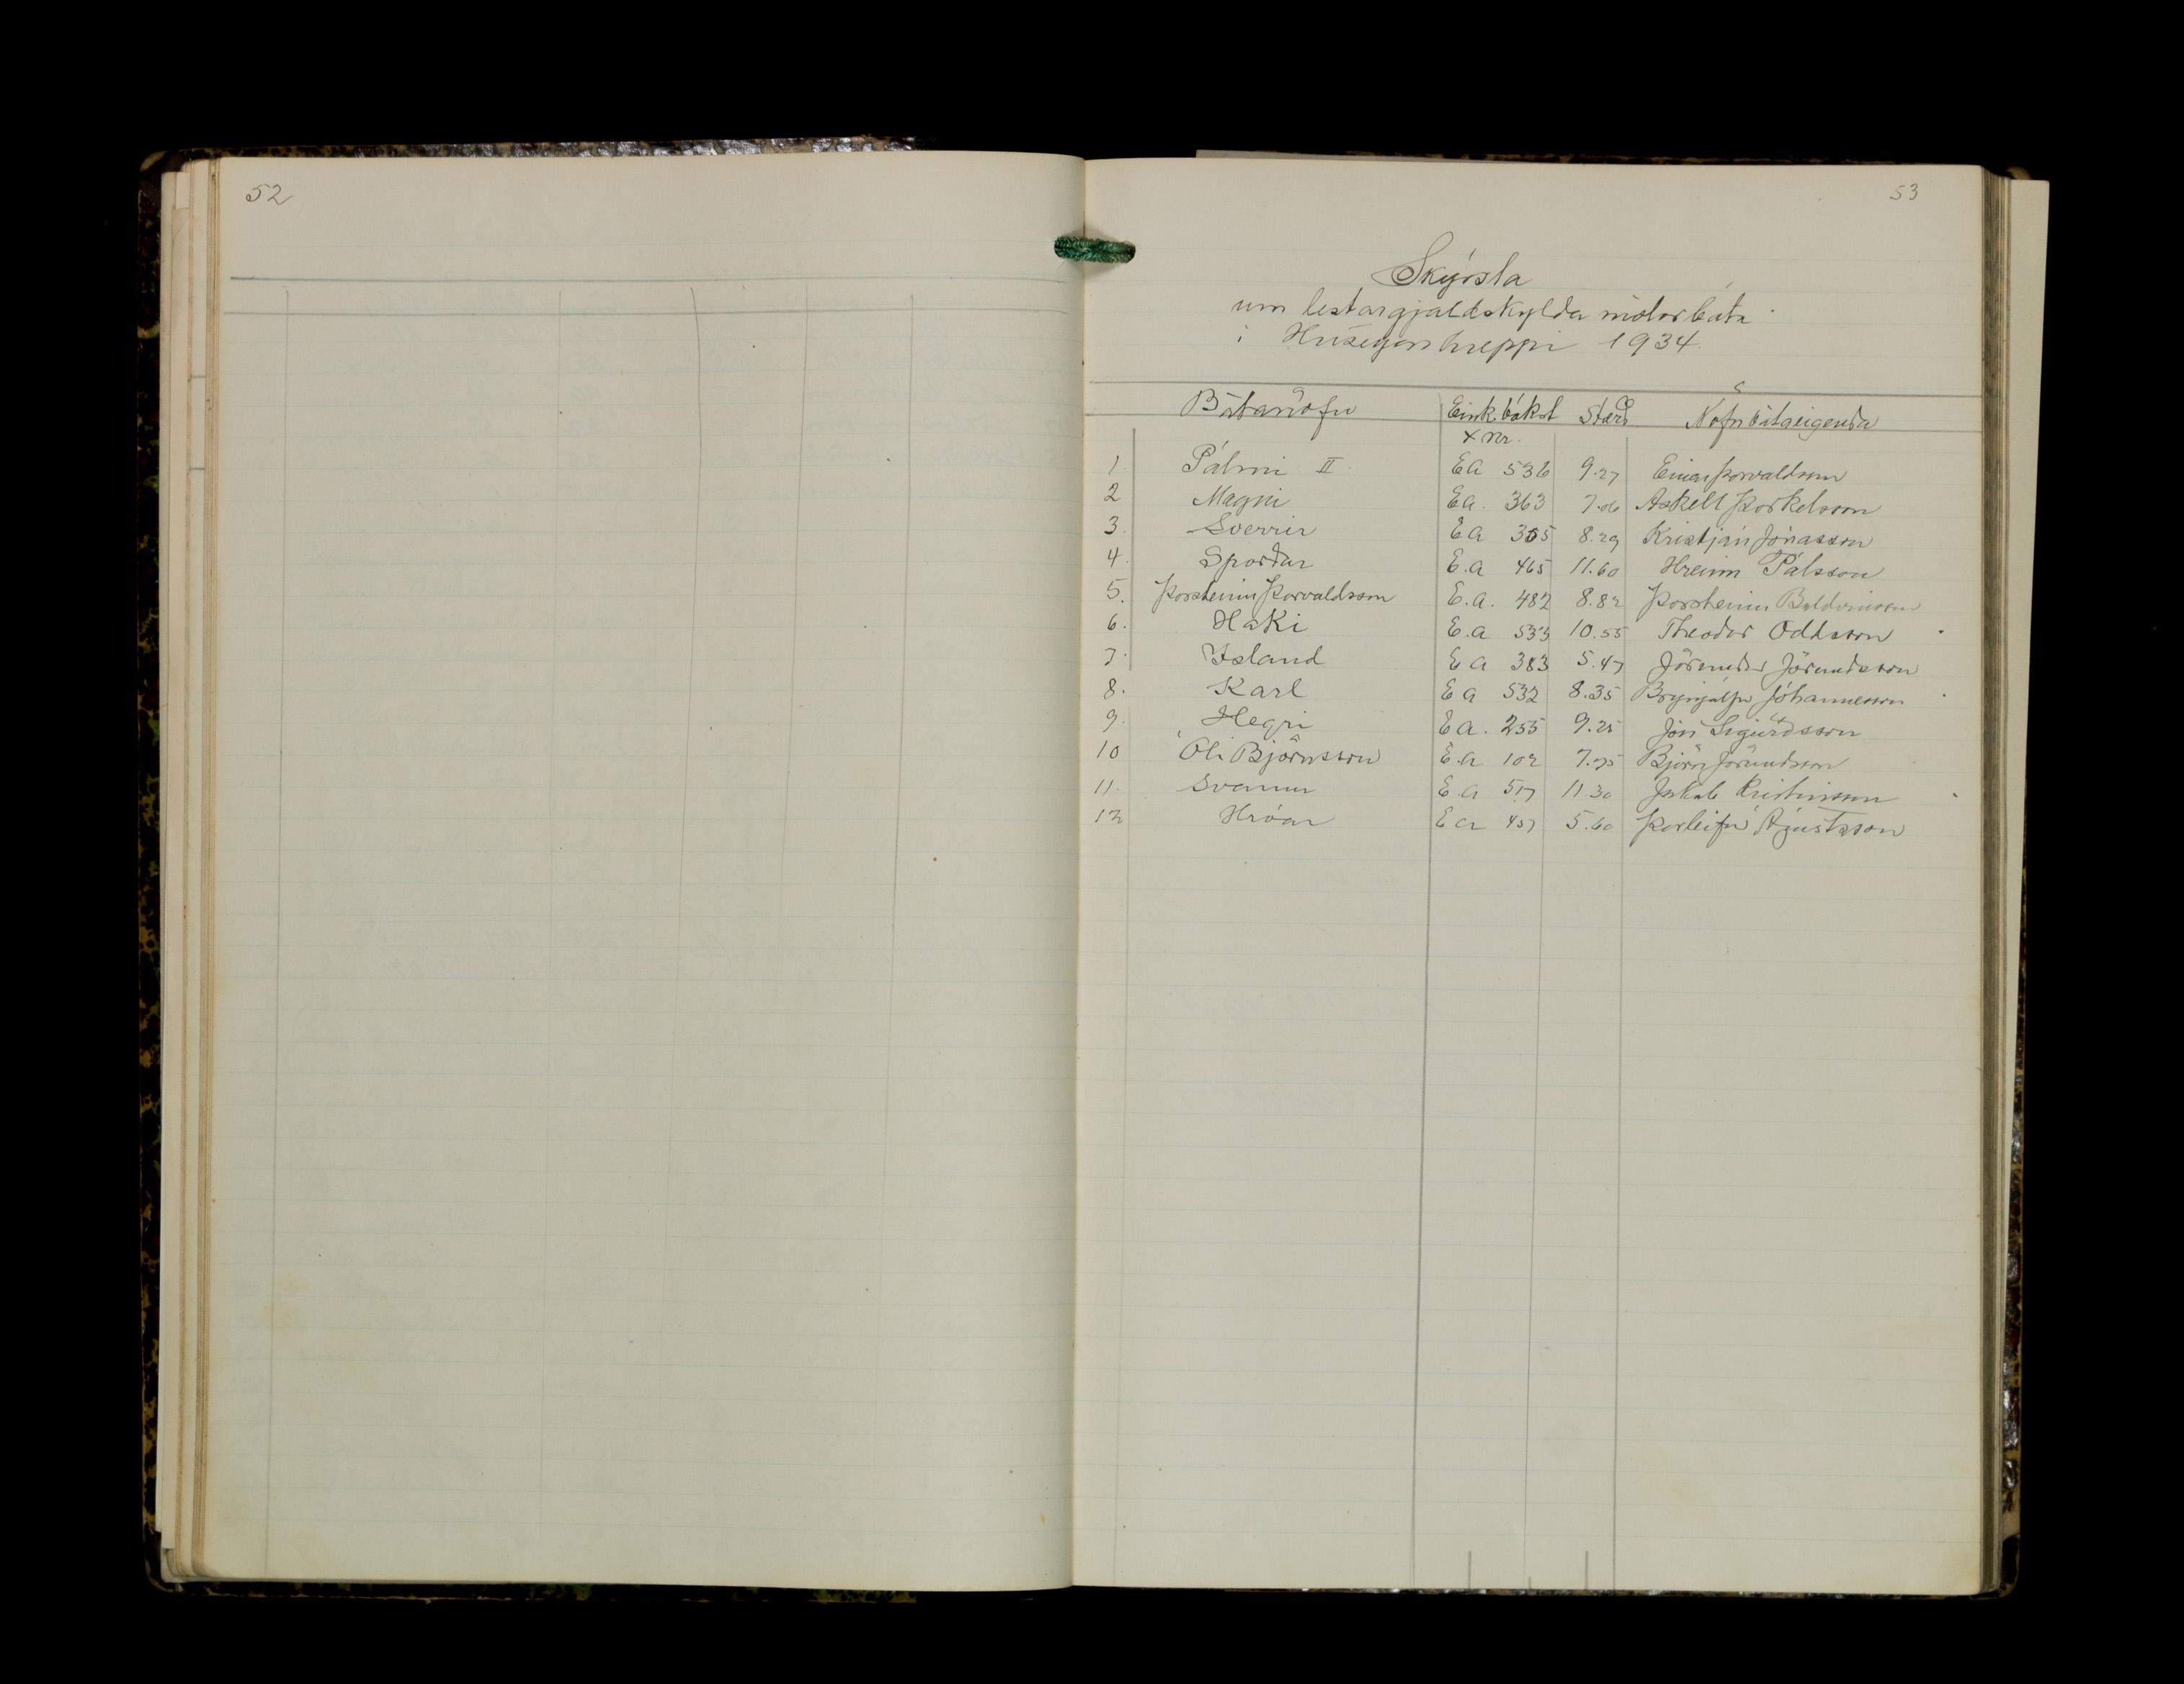 52
53
Skýrsla
um lestargjaldskylda mótorbáta
í Hríseyjarhreppi 1934.
Bátanöfn Eink.bókst Stærð Nöfn bátaeigenda
x nr.
1. Pálmi II. EA 536 9.27 Einar Þorvaldsson
2 Magni Ea. 363 7.06 Áskell Þorkelsson
3. Sverrir EA 305 8.29 Kristján Jónasson
4. Sporður E.a 465 11.60 Hreinn Pálsson
5. Þorsteinn Þorvaldsson E.a. 482 8.82 Þorsteinn Baldvinsson
6. Haki E.a 533 10.55 Theodor Oddsson
7. Ísland E a 383 5.47 Jörundur Jörundsson
8. Karl E a 532 8.35 Brynjólfur Jóhannesson
9. Hegri E a. 255 9.25 Jón Sigurdsson
10 Óli Björnsson E.a 102 7.75 Björn Jörundsson
11. Svanur E.a 517 11.30 Jakob Kristinsson
12 Hróar E a 457 5.60 Þorleifur Ágústsson